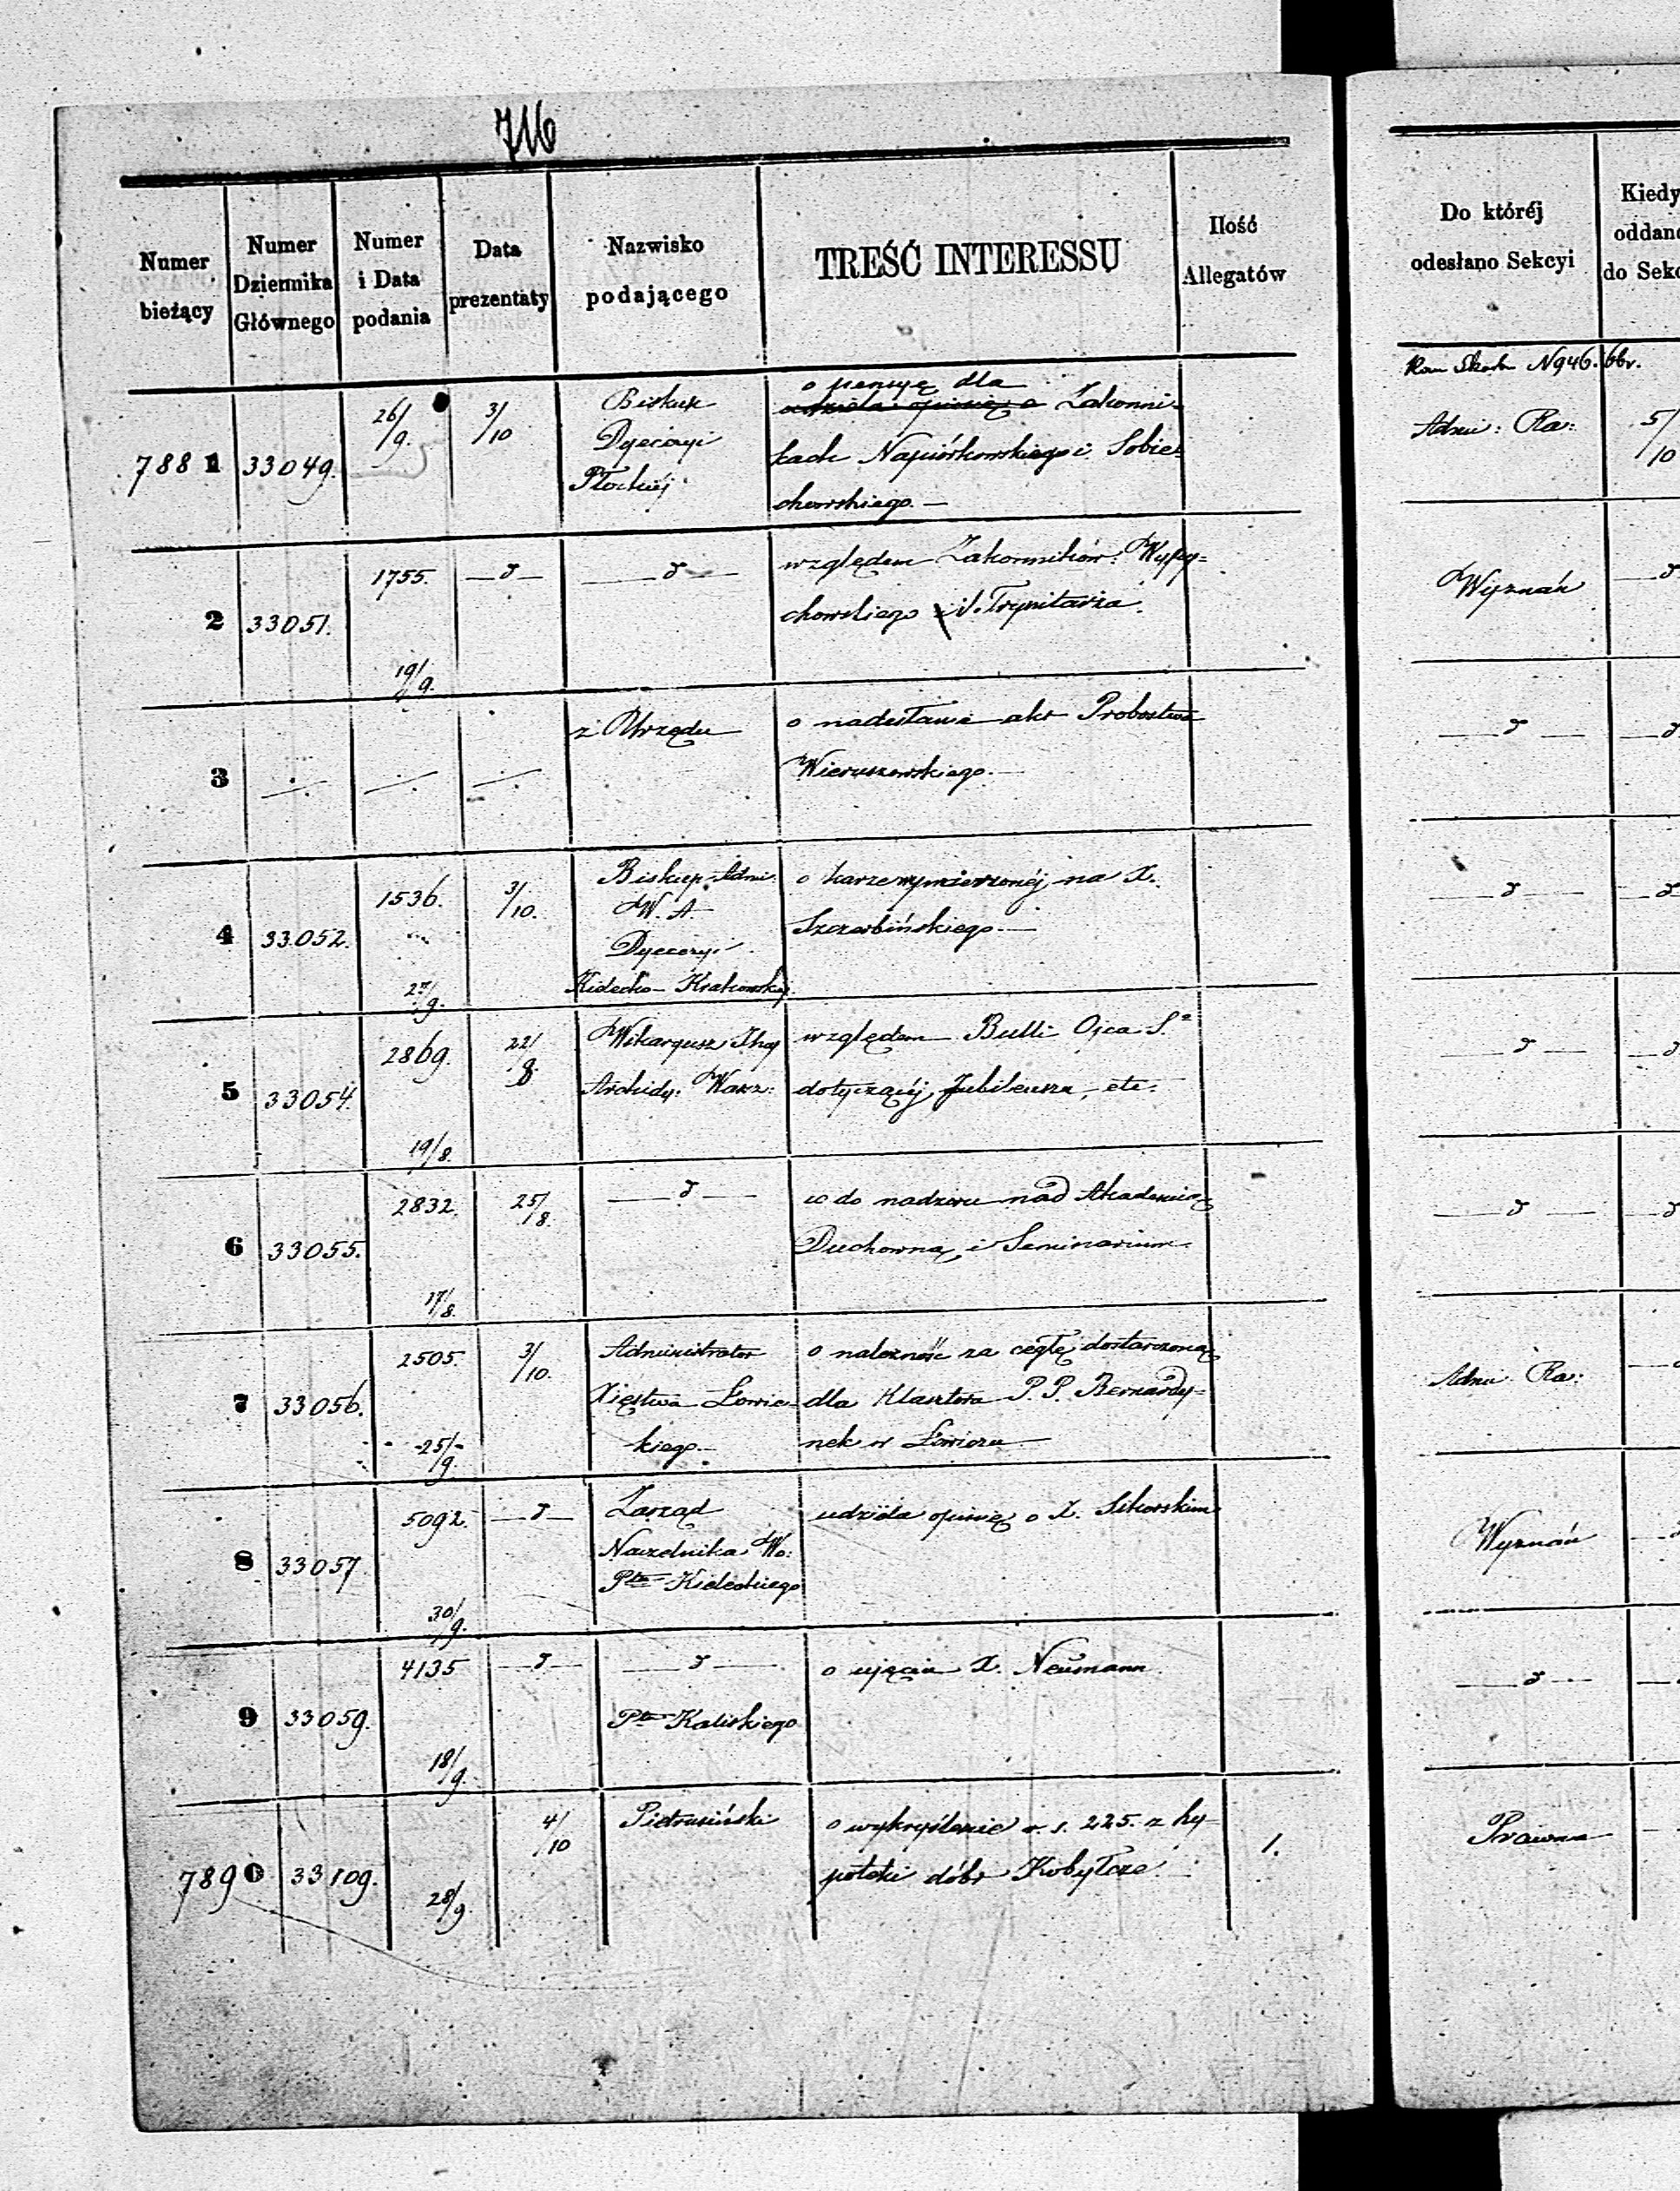 716
Numer bieżący
Numer Dziennika Głównego
Numer i Data podania
Data prezentaty
Nazwisko podającego
TREŚĆ INTERESSU
Ilość Allegatów
Do któréj odesłano Sekcyi
Kiedy oddano do Sekc
N 946.
7881
33049.
26/9.
3/10
Biskup
Dyecezyi
Płockiéj
o pensyę dla
udziela opinię o Zakonni-
kach Napiórkowskiego i Sobie-
chowskiego. —
Adm: Ra:
5/10
2
33051.
1755.
19/9.
— d —
— d —
względem Zakonników: Wyszy-
chowskiego i J. Trynitarza.
Wyznań
— d
3
z Urzędu
o nadesłanie akt Probostwa
Wieruszewskiego. —
— d —
— d
4
33052.
1536.
27/9.
3/10.
Biskup Adm:
W. A.
Dyecezyi
Kielecko-Krakowskiej
o karze wymierzonéj na X.
Szczerbińskiego. —
— d —
— d
5
33054.
2869.
19/8.
22/8.
Wikaryusz Jlny
Archidy: Warz:
względem Bulli Ojca S.
dotyczącéj Jubileusza, etc.
— d —
— d
6
33055.
2832.
17/8.
25/8.
— d —
co do nadzoru nad Akademią
Duchowną i Seminarium.
— d —
— d
7
33056.
2505.
25/9
3/10.
Administrator
Xięstwa Łowic-
kiego. —
o należność za cegłę dostarczoną
dla Klasztoru P. P. Bernardy-
nek w Łowiczu —
Adm: Ra:
8
33057.
5092.
30/9.
— d —
Zarząd
Naczelnika Wo:
Ptu Kieleckiego
udziela opinię o X. Sikorskim
Wyznań
9
33059.
4135
18/9.
— d —
— d —
Ptu Kaliskiego
o ujęciu X. Neumann.
— d —
7890
33109.
28/9
4/10
Pietrusiński
o wykreślenie r. s. 225. z hy-
poteki dóbr Kobylcze.
1.
Prawna